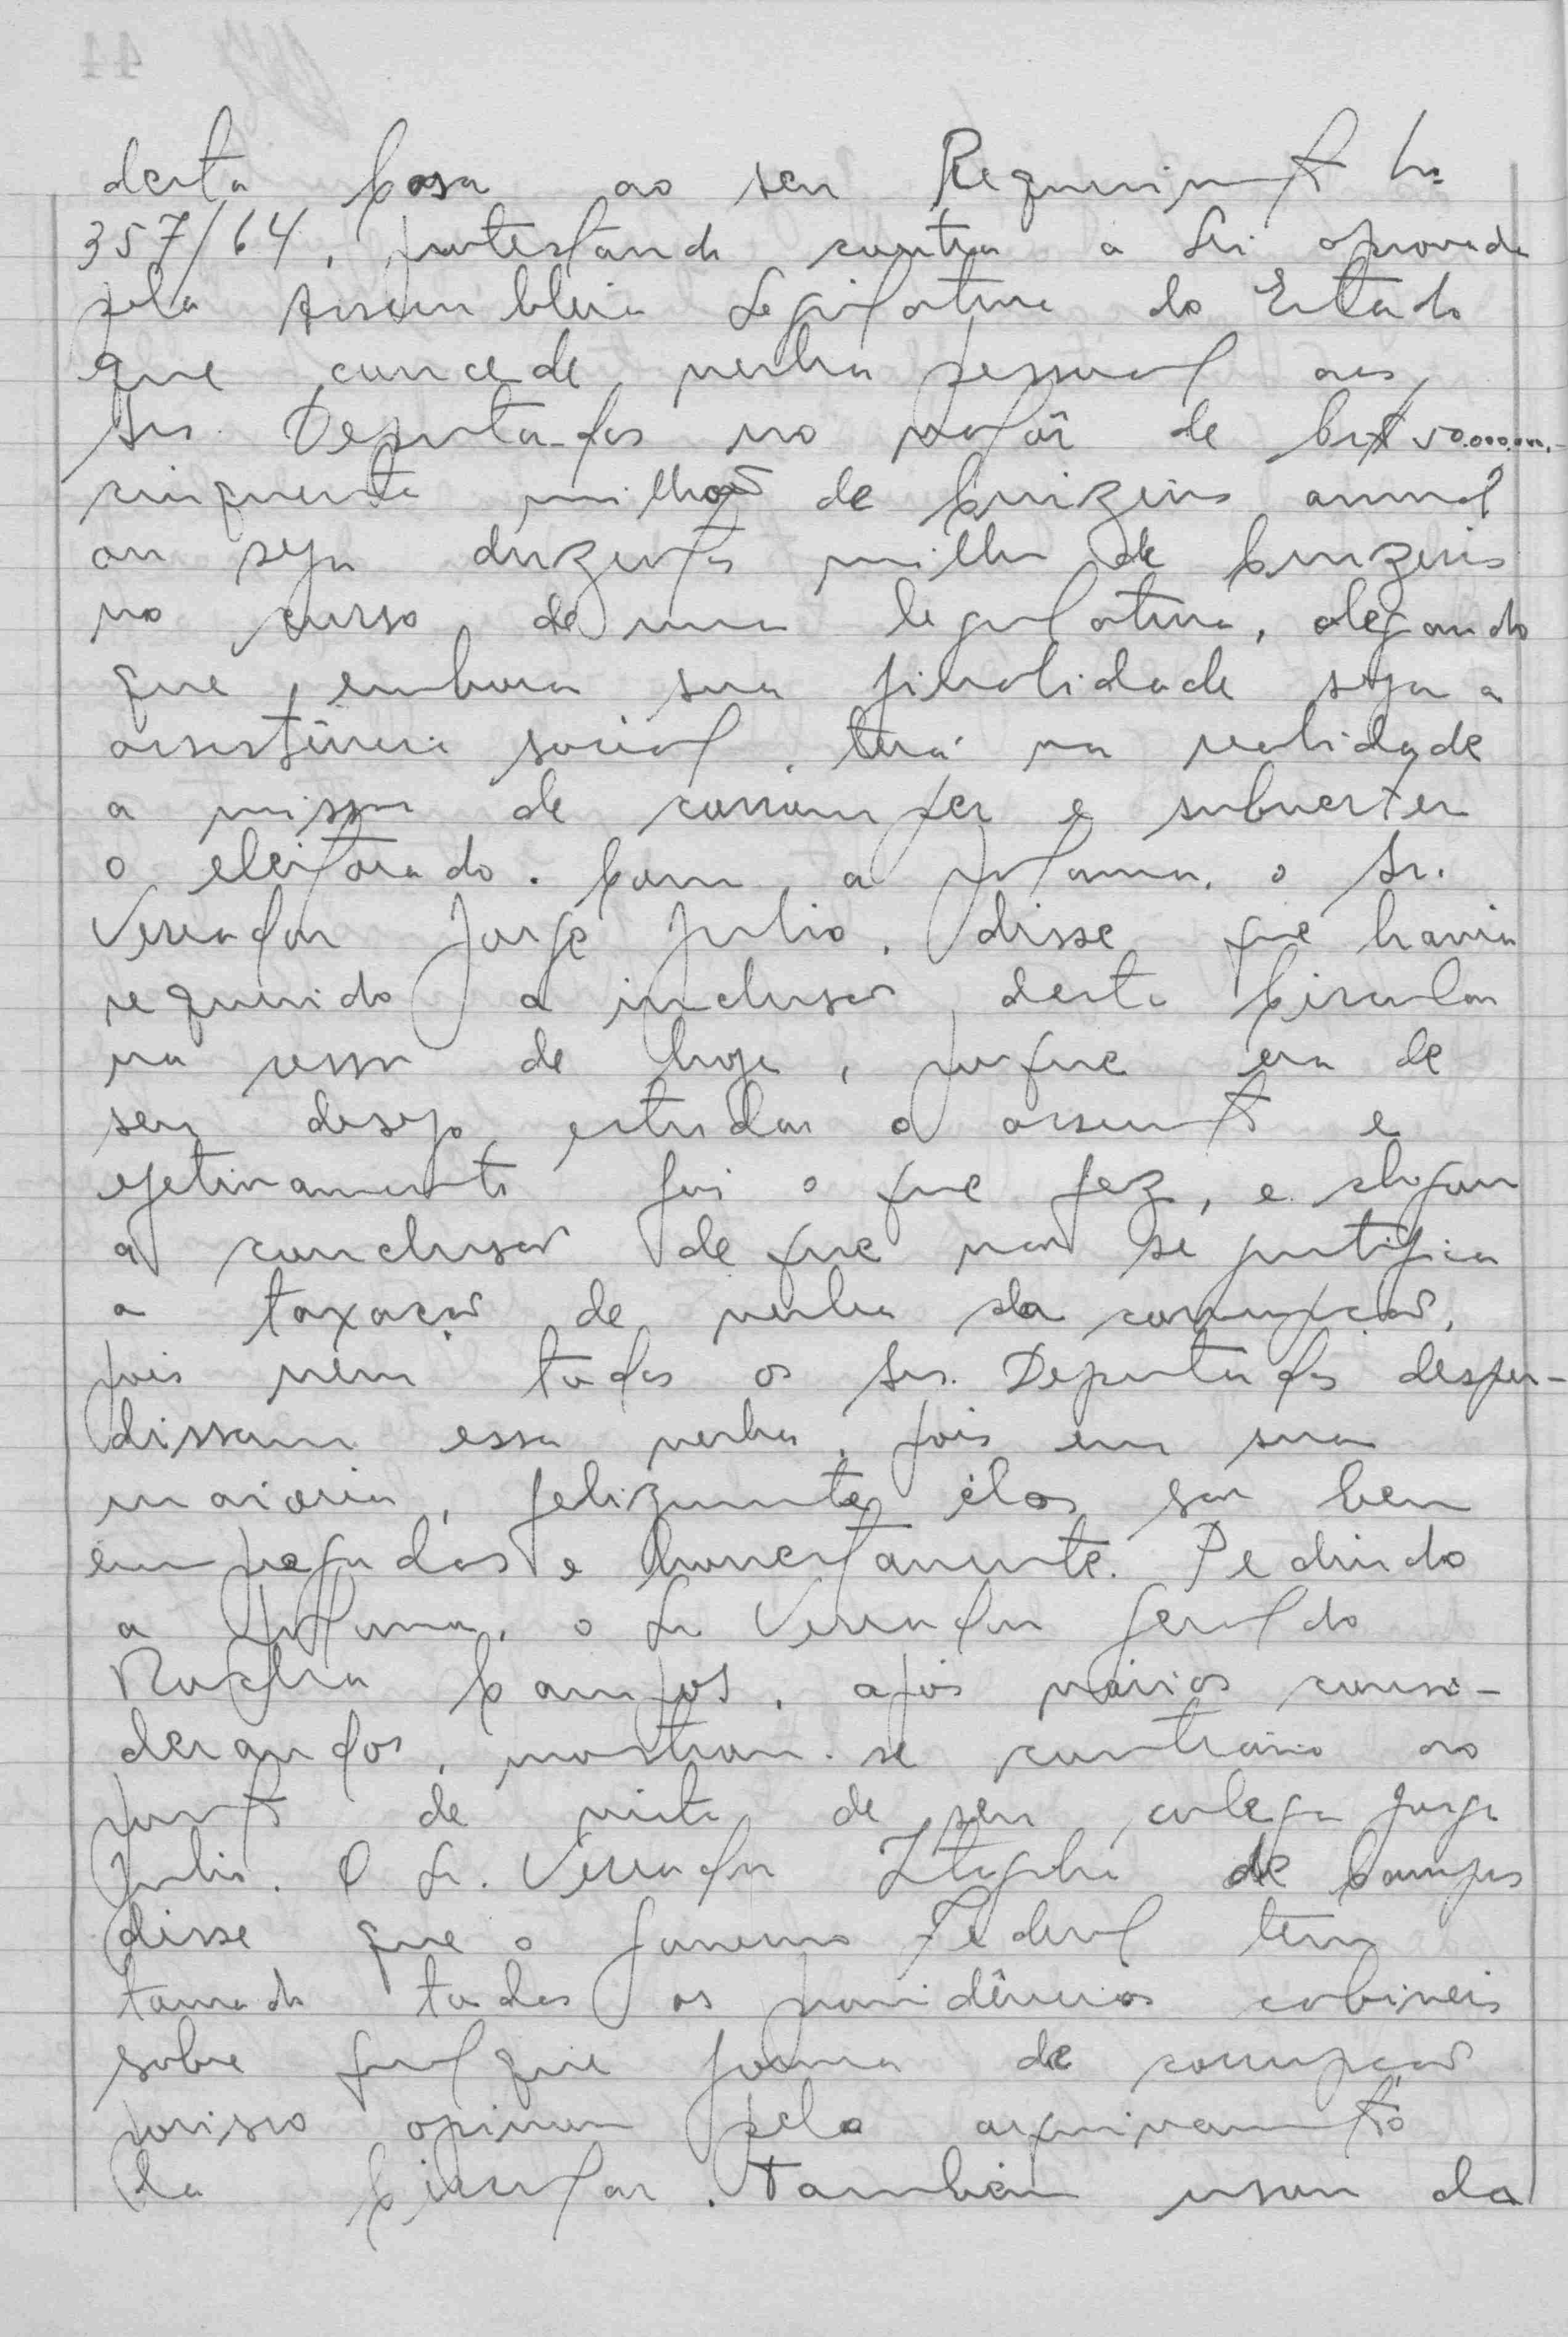 desta Casa ao seu Requerimento nº
357/64, protestando contra a Lei aprovada
pela Assembleia Legislativa do Estado
que concede verba pessoal aos
Srs. Deputados no valôr de Cr$ 50.000.000,-
cinquenta milhões de Cruzeiros anual
ou seja duzentos milhões de Cruzeiros
no curso de uma legislatura, alegando
que, embora sua finalidade seja a
assistência social, terá na realidade
a missão de corromper e subverter
o eleitorado. Com a palavra, o Sr.
Vereador Jorge Julio, disse que havia
requerido a inclusão desta Circular
na sessão de hoje, porque era de
seu desejo estudar o assunto e
efetivamente foi o que fez, e chegou
a conclusão de que não se justifica
a taxação de verba da corrupção,
pois nem todos os Srs. Deputados desper-
dissam essa verba, pois em sua
maioria, felizmente elas são bem
empregadas e honestamente. Pedindo
a palavra, o Sr Vereador Geraldo
Rocha Campos, após vários consi-
derandos, mostrou-se contrário ao
ponto de vista de seu colega Jorge
Julio. O Sr. Vereador de Campos
disse que o Governo Federal tem
tomado todas as providências cabiveis
sobre qualquer forma de corrupção
porisso opinou pelo arquivamento
da Circular. Também usou da